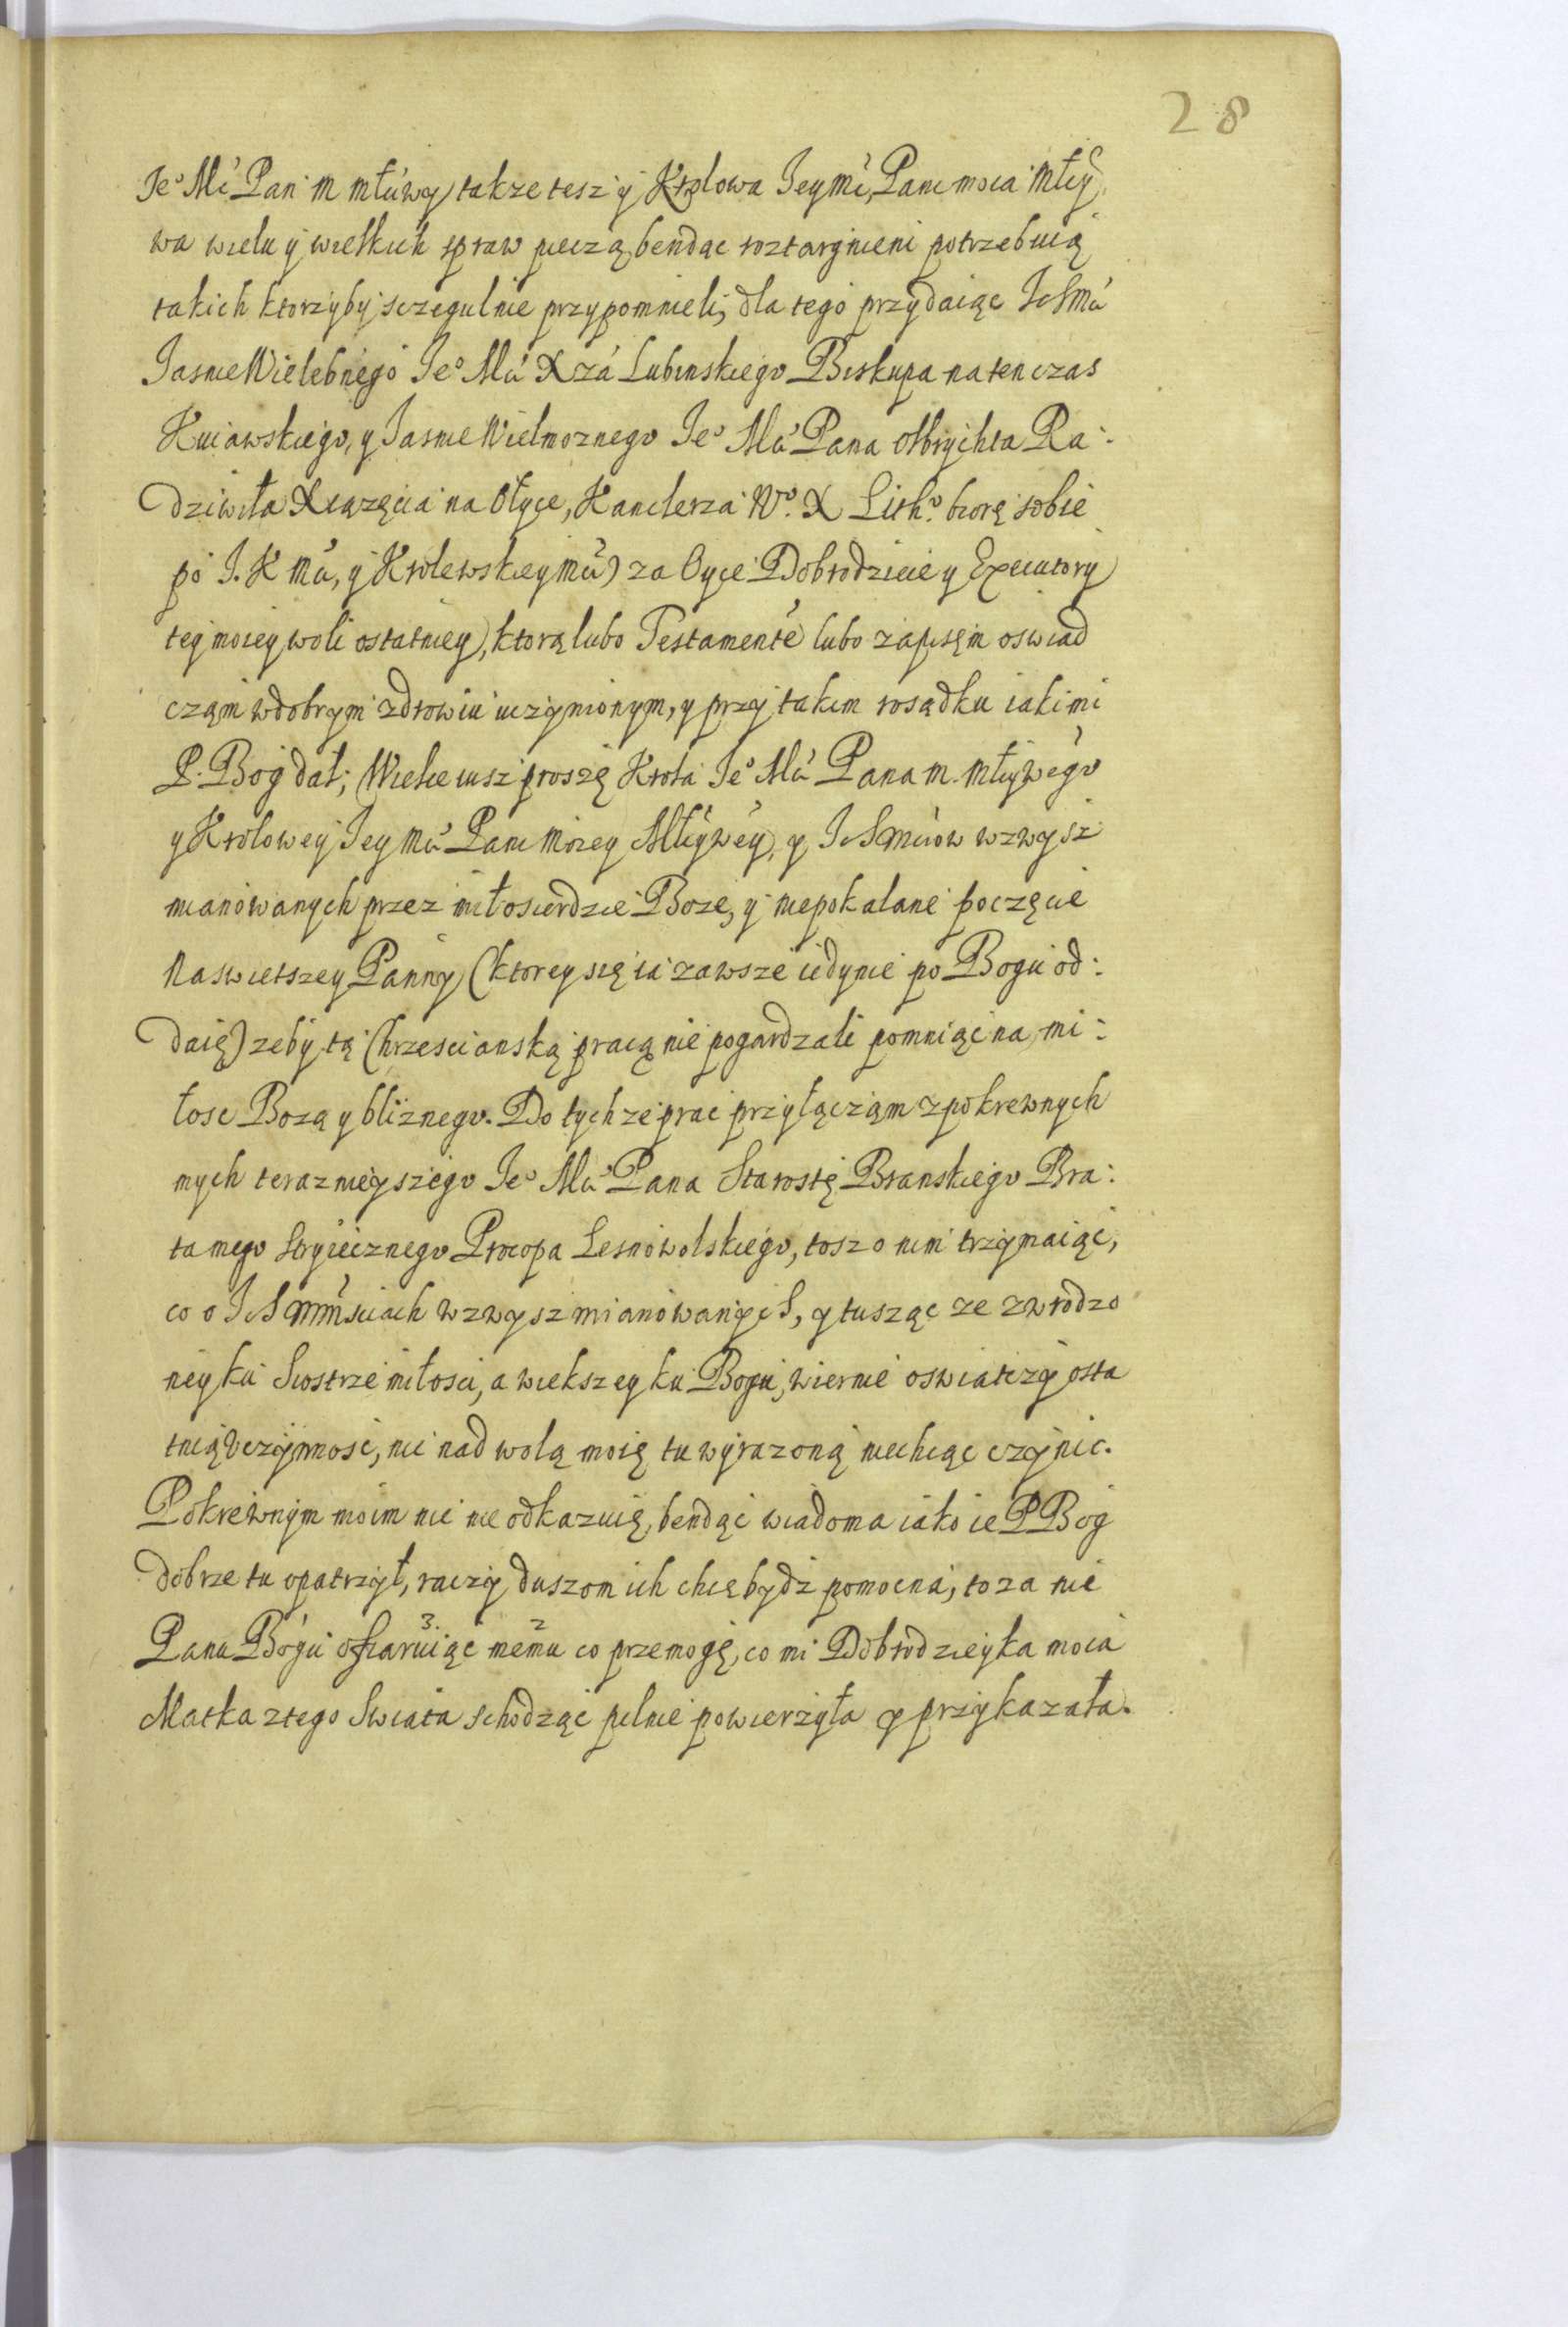 28
Je° Mć Pan m młćiwy takze tesz y Krolowa Jey Mć, Pani moia Młćy
wa wielu y wielkich spraw pieczą bendąc roztargnieni potrzebuią
takich ktorzyby sczegulnie przypomnieli; dla tego przydaiąc IchMći
JasnieWielebnego Je° Mći Xzá Lubinskiego Biskupa natenczas
Kuiawskiego, y Jasnie Wielmoznego Je° Mći Pana Olbrychta Ra:
dziwiła Xiązęcia na Ołyce, Kanclerza W°. X Lith°. biorę sobie
po J. K Mći, y Krolewskiey Mći) za Oyce Dobrodzieie y Executory
tey moiey woli ostatniey, ktorą lubo Testamentē lubo zapisęm oswiad
cząm wdobrym zdrowiu uczynionym, y przy takim rosądku iaki mi
P. Bog dał; Wielce iusz proszę Krola Je° Mći Pana m. Młćywego
y Krolowey Jey Mći Pani Moiey Młćywey, y IchMćiow wzwysz
mianowanych przez miłosierdzie Boze, y niepokalane poczęcie
Naswietszey Panny (ktorey się ia zawsze iedynie po Bogu od:
daię) zeby tą Chrzescianską pracą nie pogardzali pomniąc na mi:
łosc Bozą y bliznego. Do tychze prac przyłącząm zpokrewnych
mych terazneyszego Je° Mći Pana Starostę Branskiego Bra:
ta mego stryiecznego Procopa Lesnowolskiego, tosz o nim trzymaiąc,
co o Ich Mmsciach wzwysz mianowanych, y tusząc ze zwrodzo
ney ku Siostrze miłosci, a wiekszey ku Bogu, wiernie oswiatczy osta
tnią Uczynnosc, nic nad wolą moię tu wyrazoną niechcąc czynic.
Pokrewnym moim nic nie odkazuię, bendąc wiadoma iako ie P Bog
dobrze tu opatrzył, raczy duszom ich chcę bydz pomocna, to za nie
Panu Bogu ofiaruiąc 3. memu 2 co przemogę, co mi Dobrodzieyka moia
Matka ztego Swiata schodząc pilnie powierzyła y przykazała.